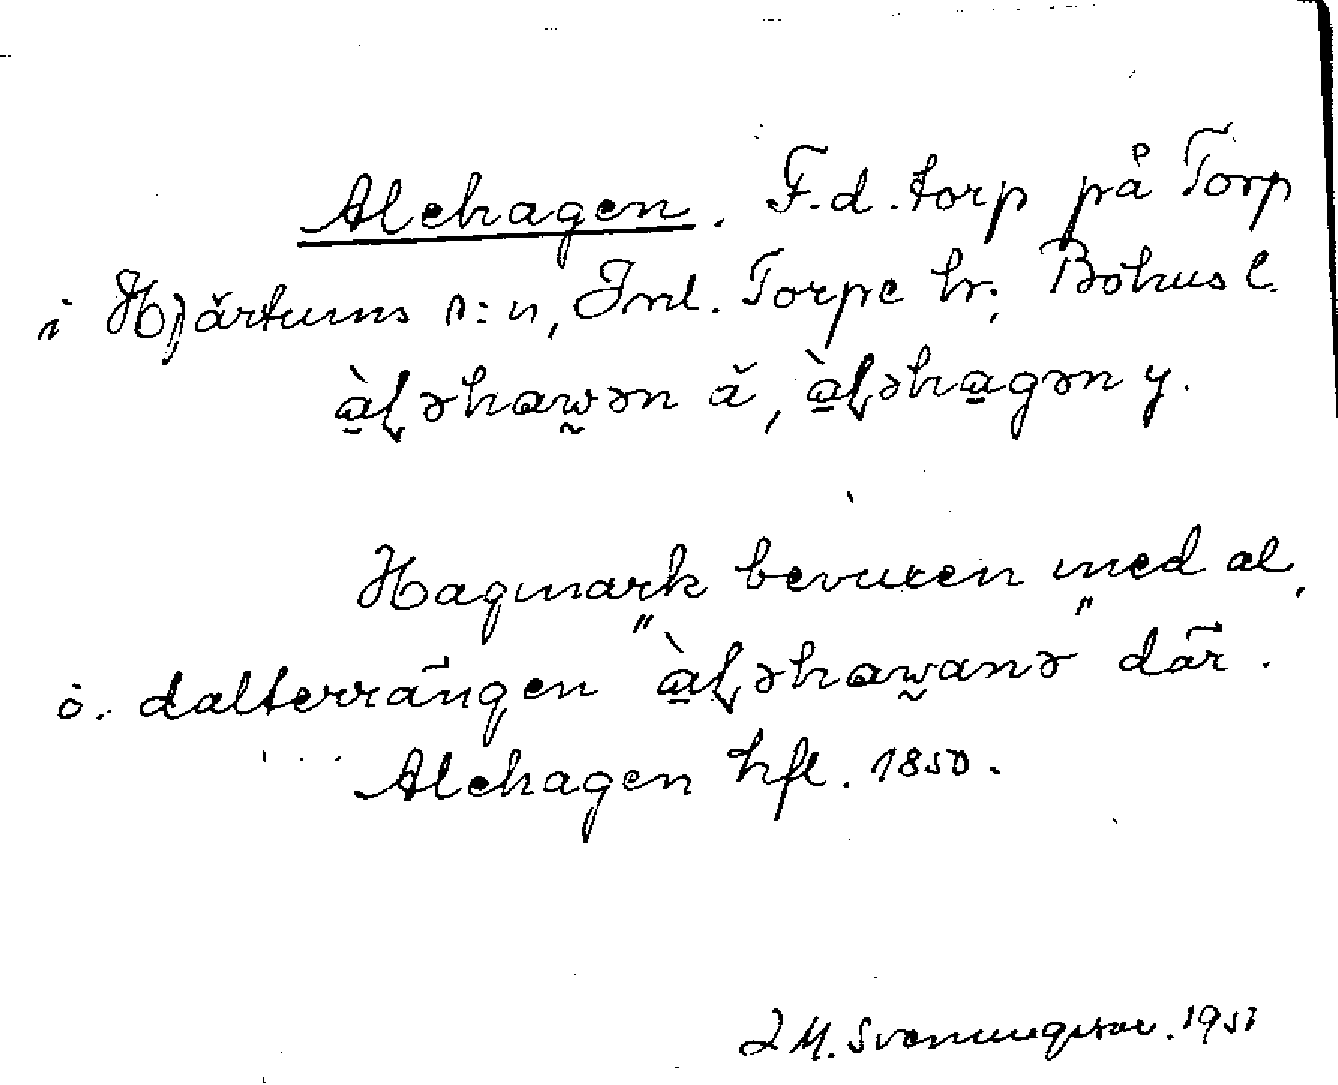 Alehagen. F.d. torp på Torp
i Hjärtums s:n, Inl. Torpe hr; Bohusl.
àl̥əhaw̰ən ä, àl̥əhagən y.
Hagmark bevuxen med al,
ö. dalterrängen "àl̥əhaw̰anə" där.
Alehagen hfl. 1850.
J M. Svenungsson. 195